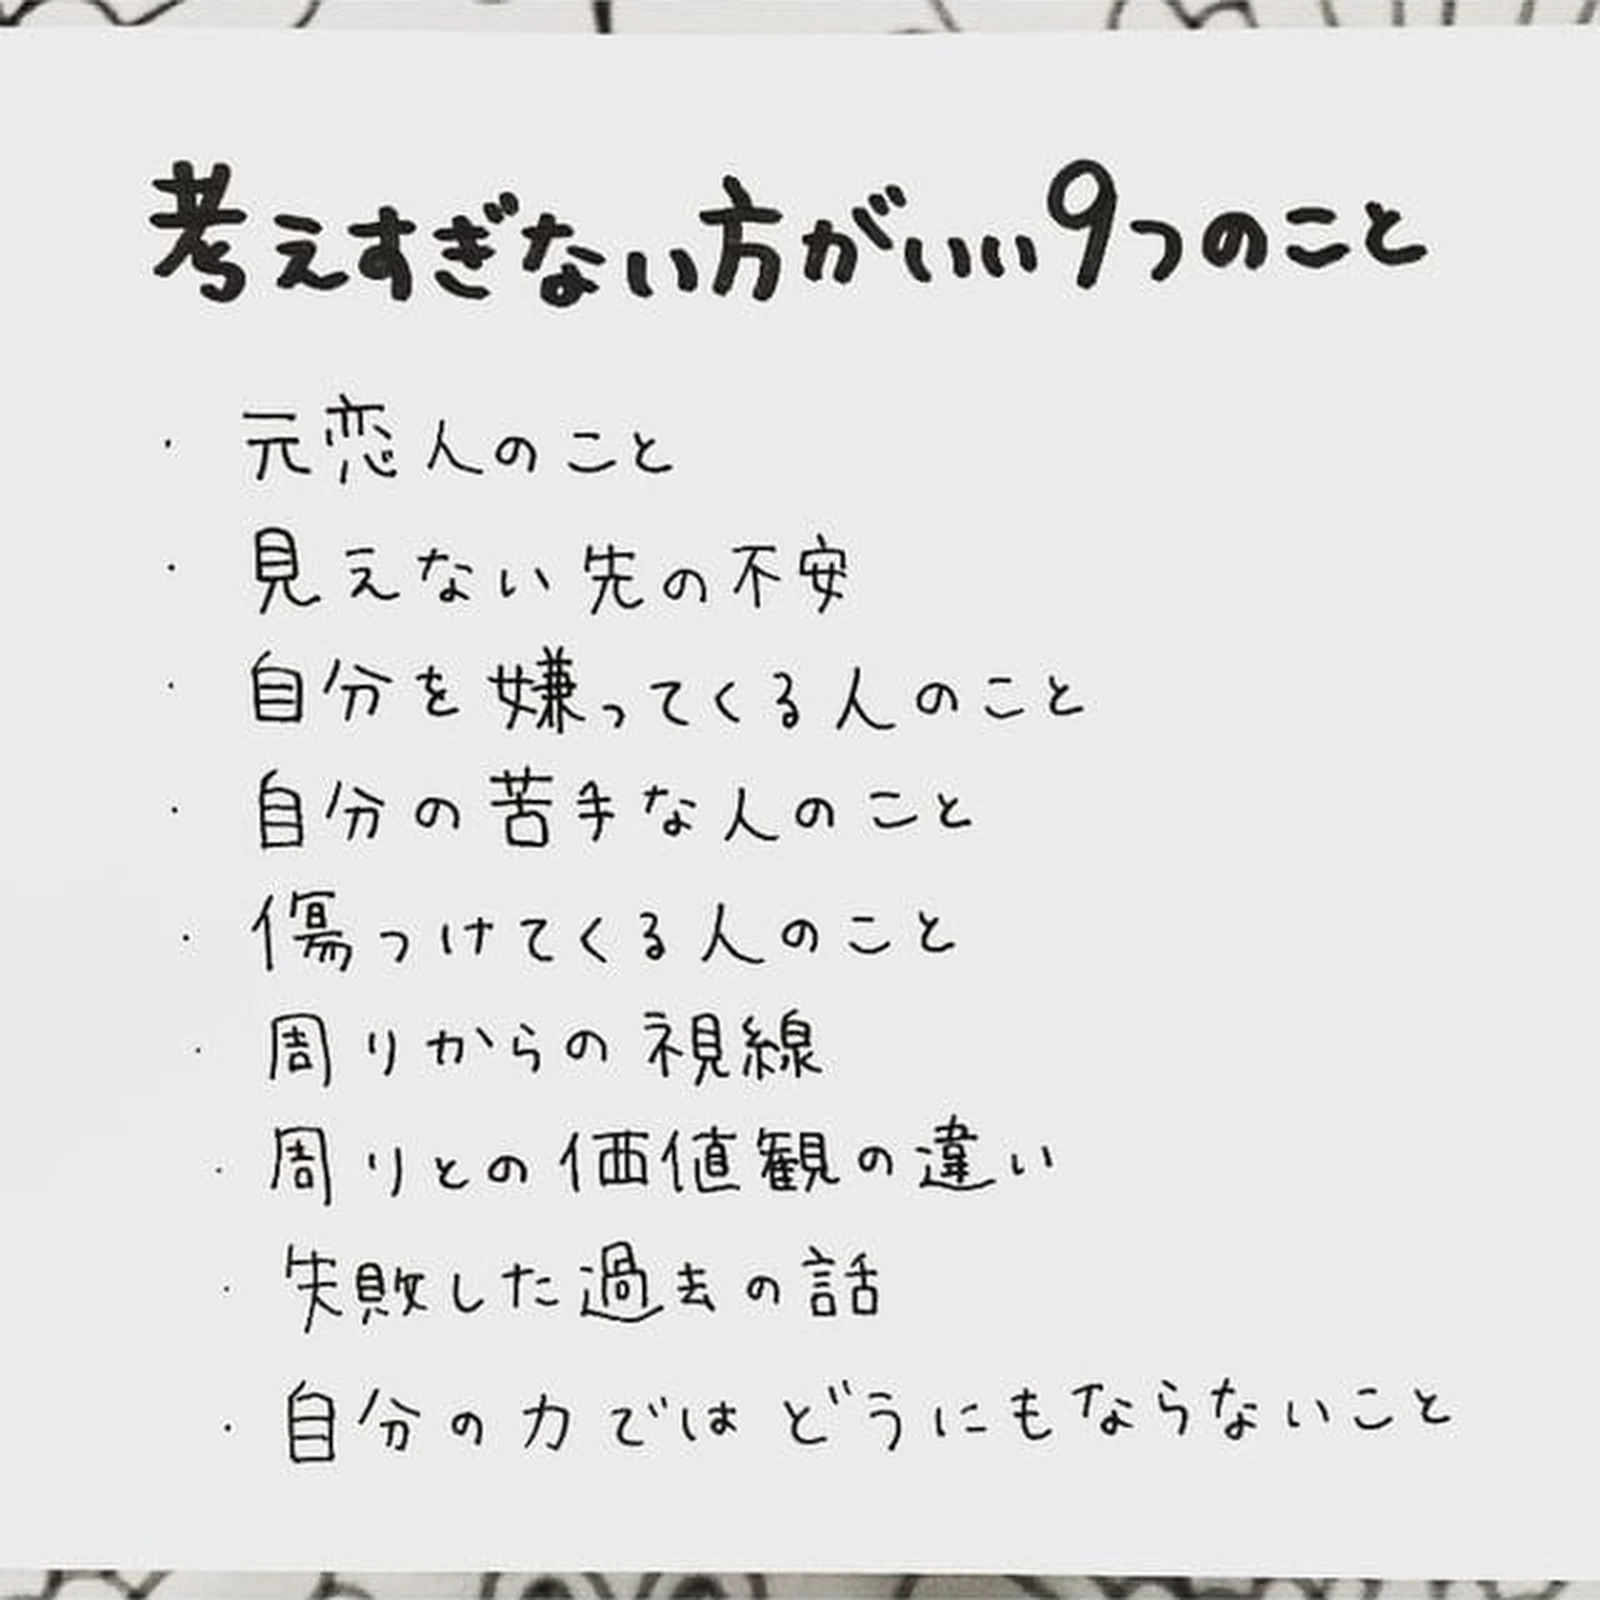 考えすぎない方がいい9つのこと
・元恋人のこと
・見えない先の不安
・自分を嫌ってくる人のこと
・自分の苦手な人のこと
・傷つけてくる人のこと
・周りからの視線
・周りとの価値観の違い
・失敗した過去の話
・自分の力ではどうにもならないこと